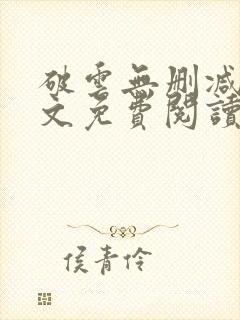 破雲無刪減
文免費閱讀
侯青伶